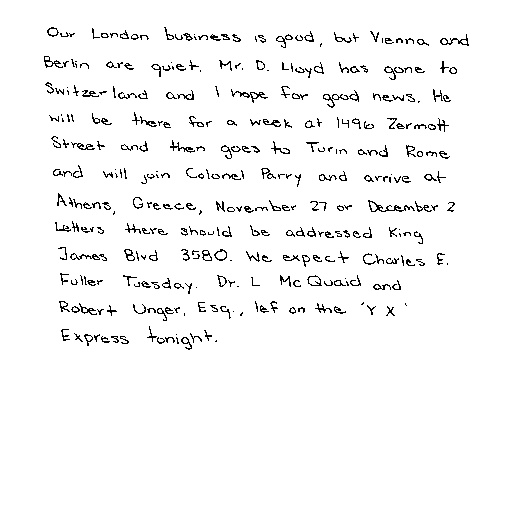 Our London business is good, but Vienna and
Berlin are quiet. Mr. D. Lloyd has gone to
Switzerland and I hope for good news. He
will be there for a week at 1496 Zermott
Street and then goes to Turin and Rome
and will join Colonel Parry and arrive at
Athens, Greece, November 27 or December 2
Letters there should be addressed King
James Blvd 3580. We expect Charles E.
Fuller Tuesday. Dr. L McQuaid and
Robert Unger, Esq., lef on the 'Y X'
Express tonight.